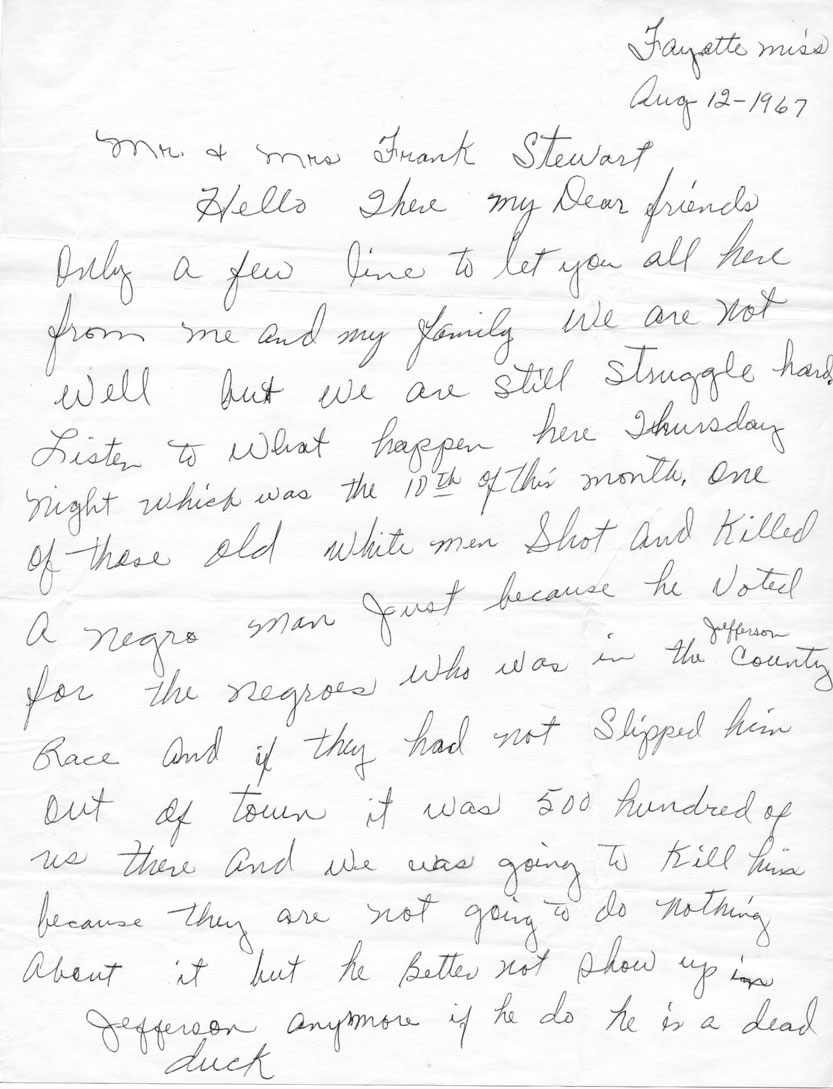 Fayette miss
Aug 12-1967
Mr. & Mrs Frank Stewart
Hello There my Dear friends
Only a few line to let you all here
from me and my family We are not
well but we are still struggle hard
Listen to what happen here Thursday
night which was the 10th of this month. One
of those old white men Shot and Killed
a negro man Just because he Voted
for the negroes who was in the Jefferson County
Race and if they had not Slipped him
out of town it was 500 hundred of
us there and we was going to Kill him
because they are not going to do nothing
About it but he Better not show up in
Jefferson anymore if he do he is a dead
duck